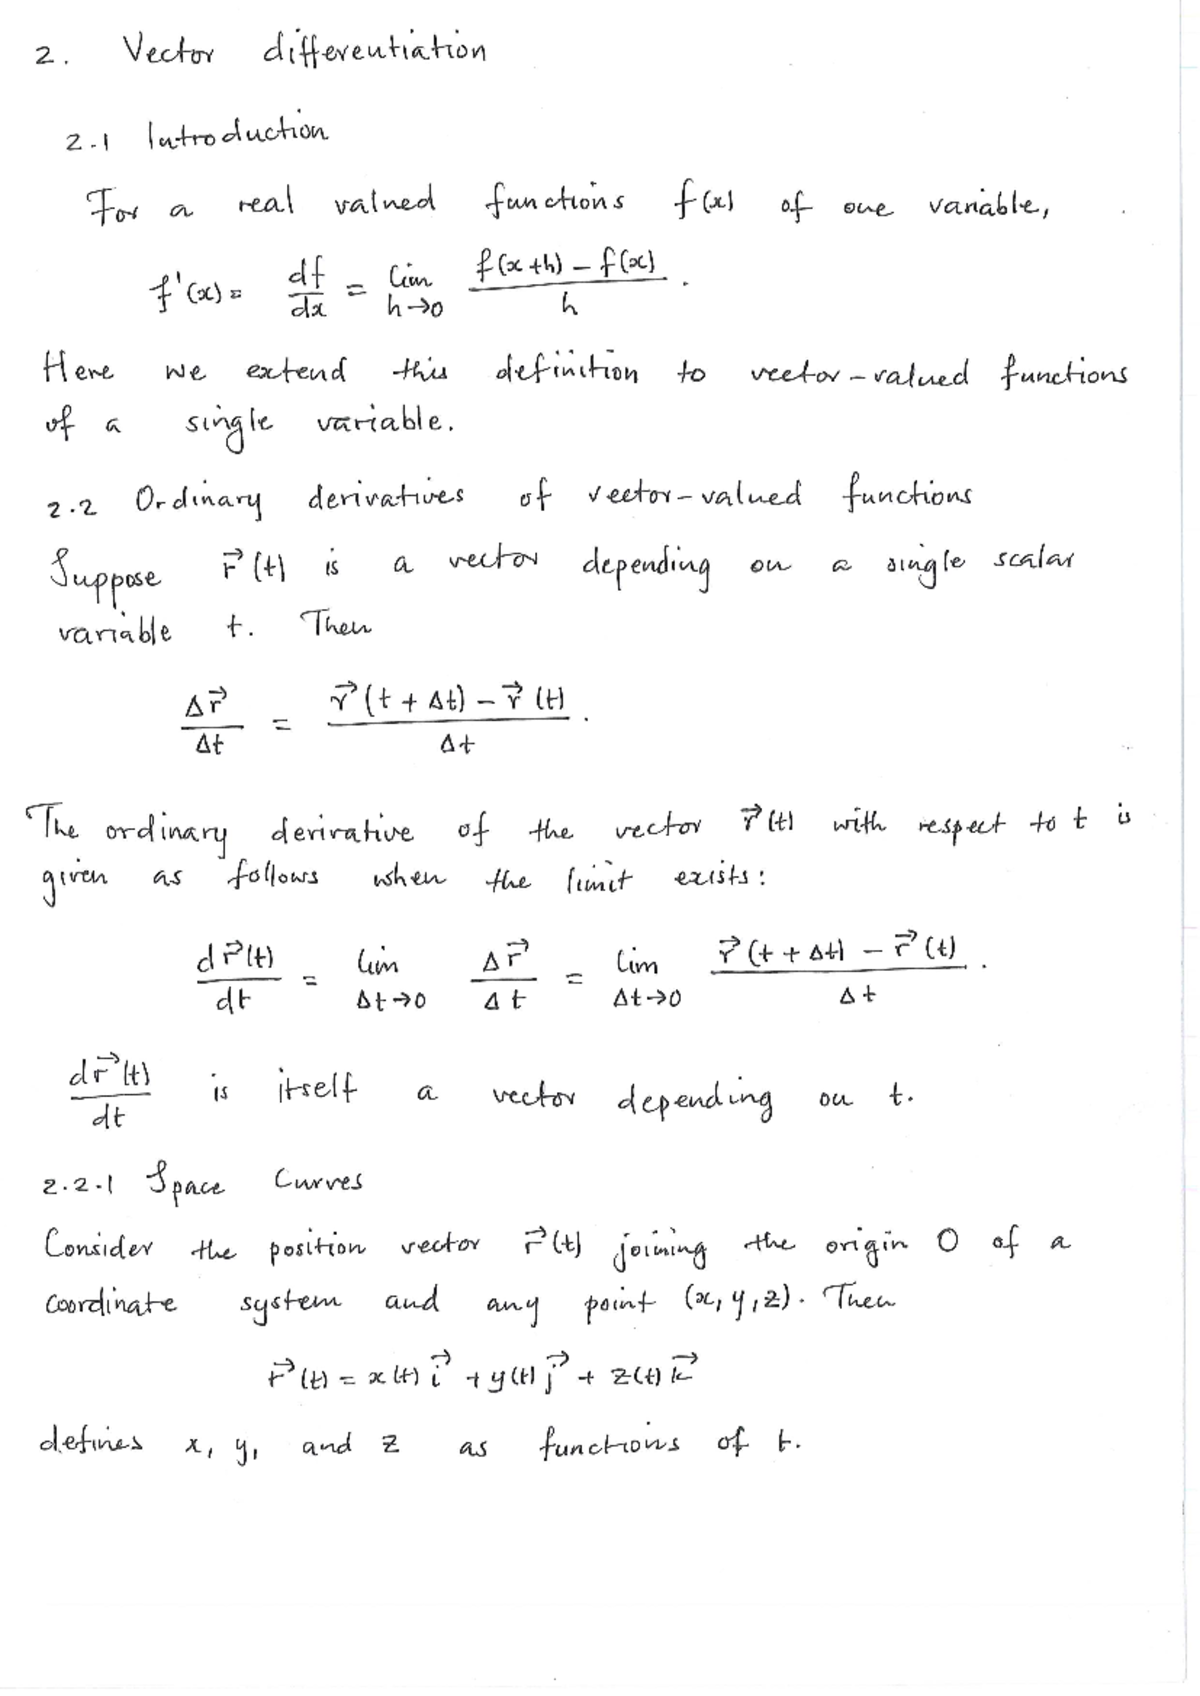 2. Vector differentiation
2.1 Introduction
For a real valued functions f(x) of one variable,
f'(x) = df/dx = lim h→0 (f(x+h) − f(x))/h .
Here we extend this definition to vector-valued functions
of a single variable.
2.2 Ordinary derivatives of vector-valued functions
Suppose r⃗(t) is a vector depending on a single scalar
variable t. Then
Δr⃗/Δt = (r⃗(t + Δt) − r⃗(t))/Δt .
The ordinary derivative of the vector r⃗(t) with respect to t is
given as follows when the limit exists:
dr⃗(t)/dt = lim Δt→0 Δr⃗/Δt = lim Δt→0 (r⃗(t + Δt) − r⃗(t))/Δt .
dr⃗(t)/dt is itself a vector depending on t.
2.2.1 Space Curves
Consider the position vector r⃗(t) joining the origin O of a
coordinate system and any point (x, y, z). Then
r⃗(t) = x(t) i⃗ + y(t) j⃗ + z(t) k⃗
defines x, y, and z as functions of t.